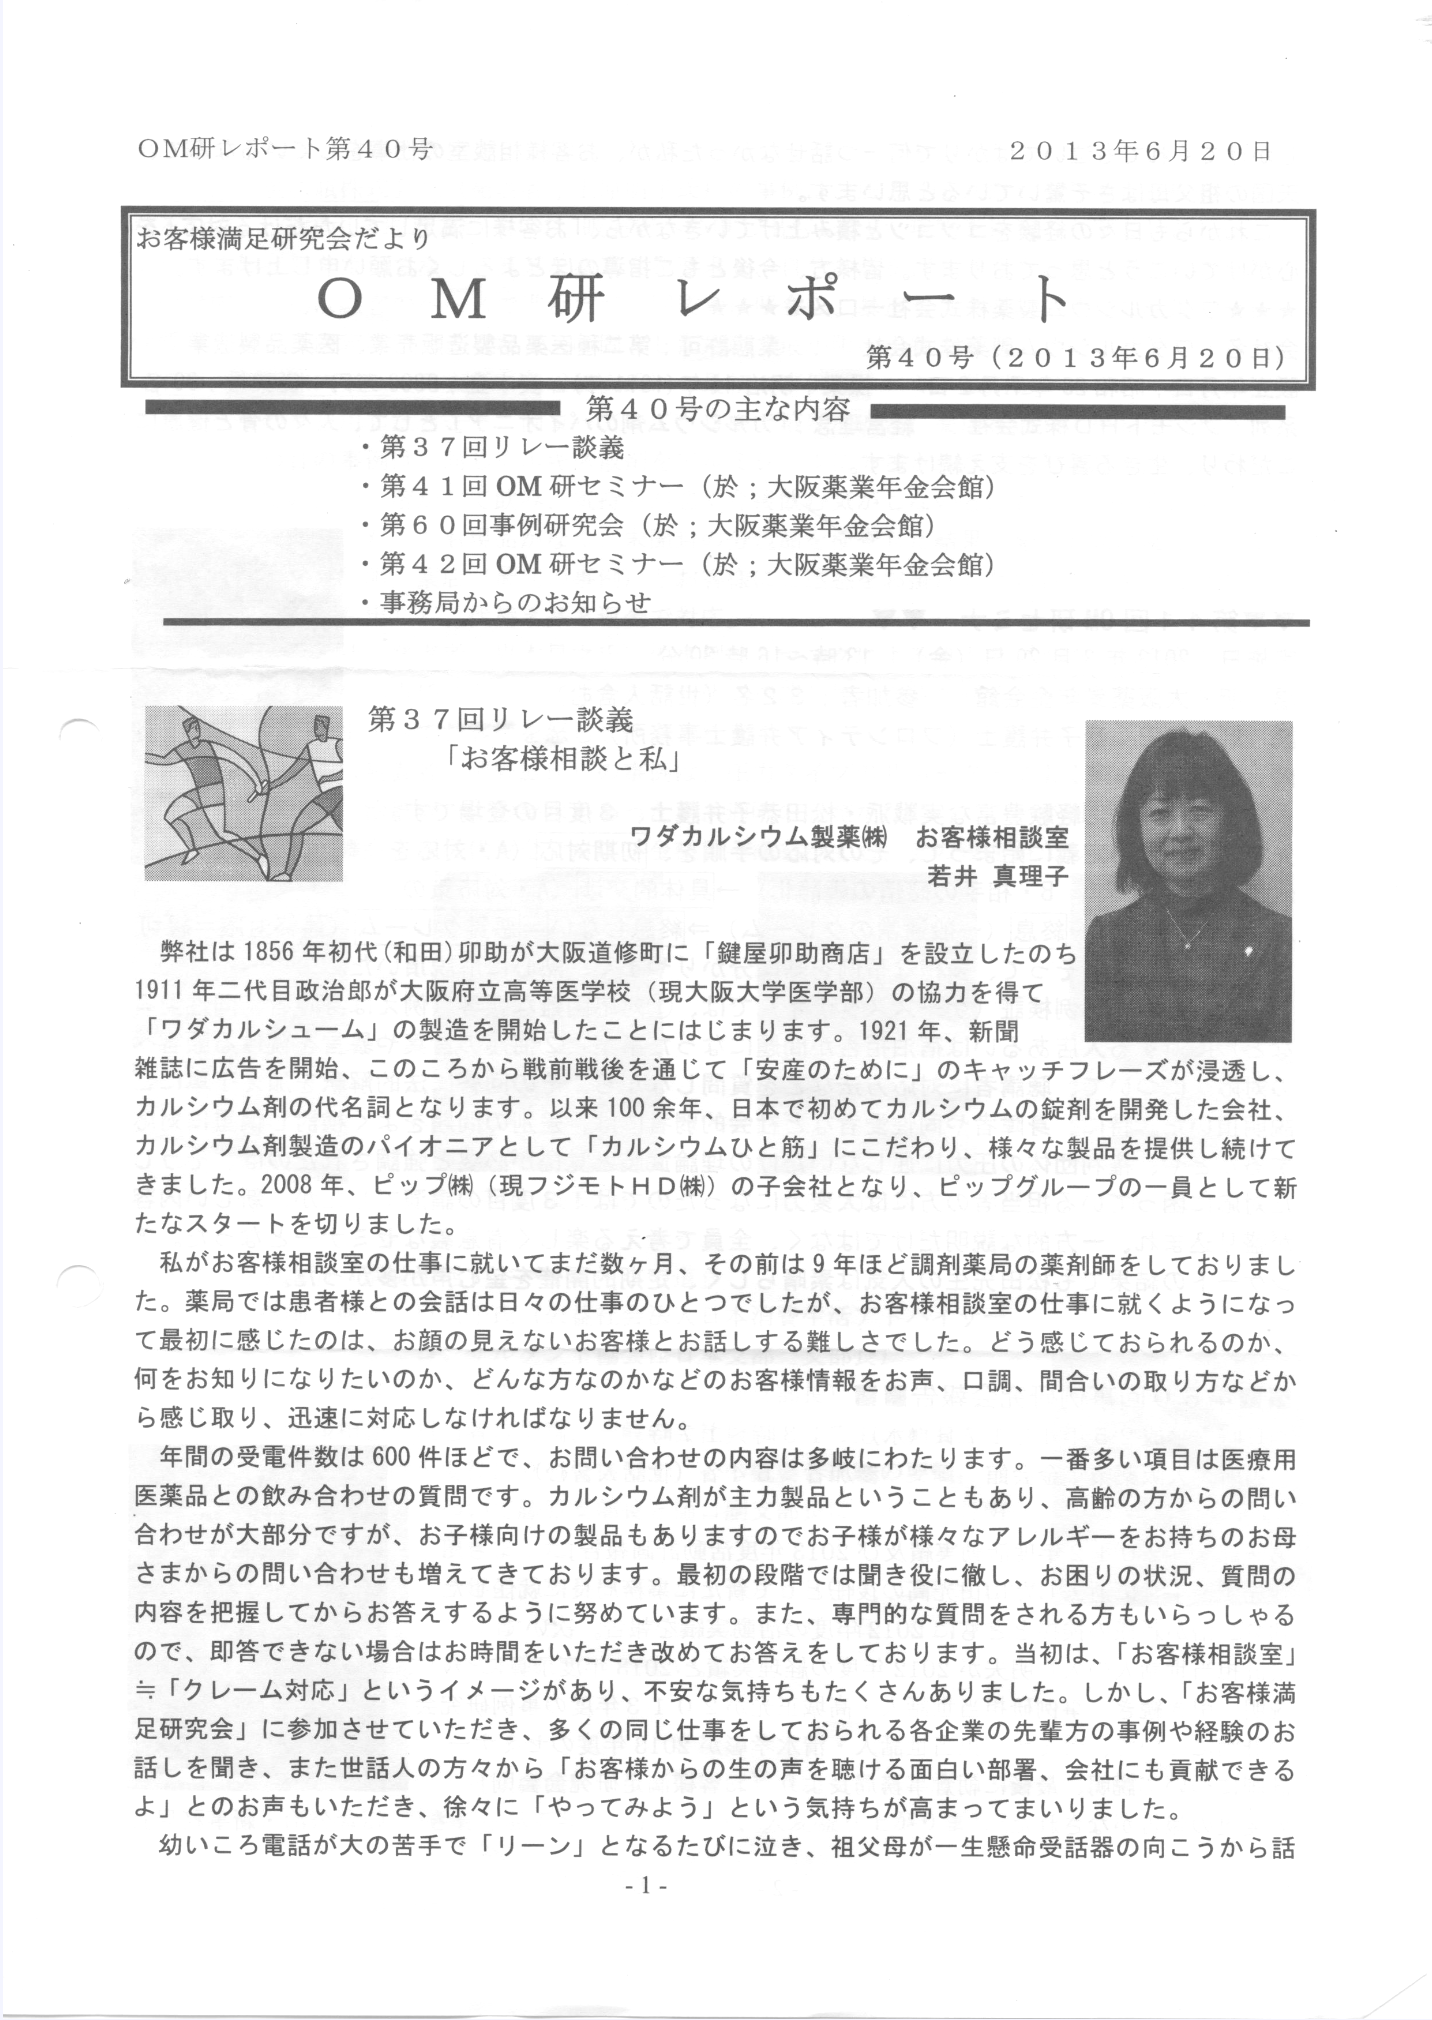 OM研レポート第40号
2013年6月20日
お客様満足研究会だより
OM研レポート
第40号（2013年6月20日）
第40号の主な内容
・第37回リレー談義
・第41回OM研セミナー（於；大阪薬業年金会館）
・第60回事例研究会（於；大阪薬業年金会館）
・第42回OM研セミナー（於；大阪薬業年金会館）
・事務局からのお知らせ
第37回リレー談義
「お客様相談と私」
ワダカルシウム製薬㈱　お客様相談室
若井 真理子
弊社は1856年初代(和田)卯助が大阪道修町に「鍵屋卯助商店」を設立したのち
1911年二代目政治郎が大阪府立高等医学校（現大阪大学医学部）の協力を得て
「ワダカルシューム」の製造を開始したことにはじまります。1921年、新聞
雑誌に広告を開始、このころから戦前戦後を通じて「安産のために」のキャッチフレーズが浸透し、
カルシウム剤の代名詞となります。以来100余年、日本で初めてカルシウムの錠剤を開発した会社、
カルシウム剤製造のパイオニアとして「カルシウムひと筋」にこだわり、様々な製品を提供し続けて
きました。2008年、ピップ㈱（現フジモトＨＤ㈱）の子会社となり、ピップグループの一員として新
たなスタートを切りました。
私がお客様相談室の仕事に就いてまだ数ヶ月、その前は9年ほど調剤薬局の薬剤師をしておりまし
た。薬局では患者様との会話は日々の仕事のひとつでしたが、お客様相談室の仕事に就くようになっ
て最初に感じたのは、お顔の見えないお客様とお話しする難しさでした。どう感じておられるのか、
何をお知りになりたいのか、どんな方なのかなどのお客様情報をお声、口調、間合いの取り方などか
ら感じ取り、迅速に対応しなければなりません。
年間の受電件数は600件ほどで、お問い合わせの内容は多岐にわたります。一番多い項目は医療用
医薬品との飲み合わせの質問です。カルシウム剤が主力製品ということもあり、高齢の方からの問い
合わせが大部分ですが、お子様向けの製品もありますのでお子様が様々なアレルギーをお持ちのお母
さまからの問い合わせも増えてきております。最初の段階では聞き役に徹し、お困りの状況、質問の
内容を把握してからお答えするように努めています。また、専門的な質問をされる方もいらっしゃる
ので、即答できない場合はお時間をいただき改めてお答えをしております。当初は、「お客様相談室」
≒「クレーム対応」というイメージがあり、不安な気持ちもたくさんありました。しかし、「お客様満
足研究会」に参加させていただき、多くの同じ仕事をしておられる各企業の先輩方の事例や経験のお
話しを聞き、また世話人の方々から「お客様からの生の声を聴ける面白い部署、会社にも貢献できる
よ」とのお声もいただき、徐々に「やってみよう」という気持ちが高まってまいりました。
幼いころ電話が大の苦手で「リーン」となるたびに泣き、祖父母が一生懸命受話器の向こうから話
- 1 -